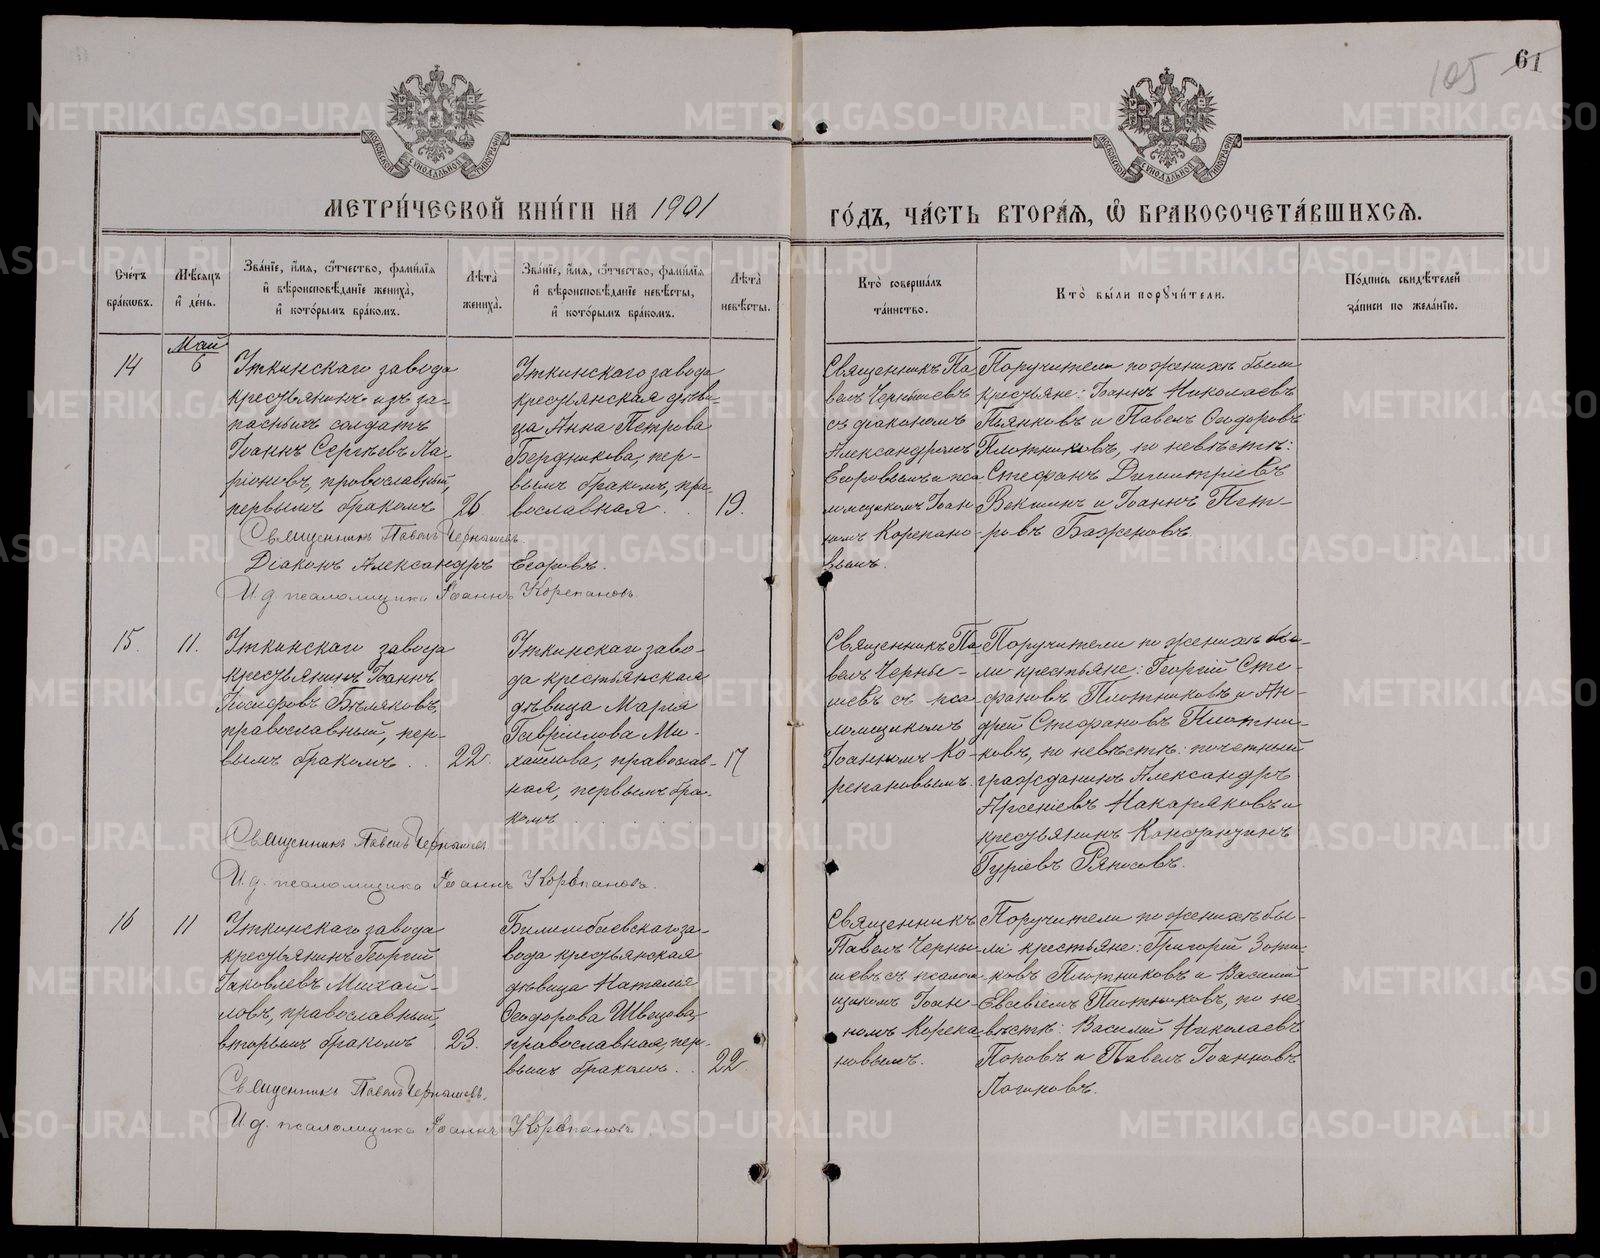 105 61
МЕТРИ́ЧЕСКОЙ КНИ́ГИ НА 1901
ГО́ДЪ, ЧА́СТЬ ВТОРА́Я, Ѡ БРАКОСОЧЕТА́ВШИХСЯ.
Счетъ браковъ.
Мѣсяцъ и день.
Зва́нїе, и́мя, ѻ҆́тчество, фами́лїя
и҆ вѣроисповѣ́данїе жениха̀,
и҆ кото́рымъ бра́комъ.
Лѣта̀ жениха̀.
Зва́нїе, и́мя, ѻ҆́тчество, фами́лїя
и҆ вѣроисповѣ́данїе невѣ́сты,
и҆ кото́рымъ бра́комъ.
Лѣта̀ невѣ́сты.
Кто̀ соверша́лъ та́инство.
Кто̀ бы́ли поручи́тели.
По́дпись свидѣ́телей за́писи по жела́нїю.
14
Май
6
Уткинскаго завода
крестьянинъ изъ за-
пасныхъ солдатъ
Іоаннъ Сергѣевъ Ла-
ріоновъ, православный,
первымъ бракомъ
26
Уткинскаго завода
крестьянская дѣви-
ца Анна Петрова
Бердникова, пер-
вымъ бракомъ, пра-
вославная. .
19.
Священникъ Па
велъ Чернышевъ
съ діакономъ
Александромъ
Егоровымъ и пса
ломщикомъ Іоан
номъ Корепано-
вымъ.
Поручители по женихѣ были
крестьяне: Іоаннъ Николаевъ
Пьянковъ и Павелъ Ѳеодоровъ
Плотниковъ, по невѣстѣ:
Стефанъ Димитріевъ
Векшинъ и Іоаннъ Пет-
ровъ Баженовъ.
Священникъ Павелъ Чернышевъ.
Діаконъ Александръ Егоровъ.
И. д. псаломщика Іоаннъ Корепановъ.
15.
11.
Уткинскаго завода
крестьянинъ Іоаннъ
Іосифовъ Бѣляковъ,
православный, пер-
вымъ бракомъ . .
22.
Уткинскаго заво-
да крестьянская
дѣвица Марія
Гавріилова Ми-
хайлова, православ-
ная, первымъ бра-
комъ
17
Священникъ Па
велъ Черны-
шевъ съ пса-
ломщикомъ
Іоанномъ Ко-
репановымъ.
Поручители по женихѣ бы-
ли крестьяне: Георгій Сте-
фановъ Плотниковъ и Ан-
дрей Стефановъ Плотни-
ковъ, по невѣстѣ: почетный
гражданинъ Александръ
Арсеніевъ Макаряковъ и
крестьянинъ Константинъ
Гуріевъ Ряпосовъ.
Священникъ Павелъ Чернышевъ
И. д. псаломщика Іоаннъ Корепановъ.
16
11
Уткинскаго завода
крестьянинъ Георгій
Іаковлевъ Михай-
ловъ, православный,
вторымъ бракомъ
23.
Билимбаевскаго за-
вода крестьянская
дѣвица Наталія
Ѳеодорова Швецова,
православная, пер-
вымъ бракомъ. .
22.
Священникъ
Павелъ Черны-
шевъ съ псалом
щикомъ Іоан-
номъ Корепа
новымъ.
Поручители по женихѣ бы-
ли крестьяне: Григорій Зоти-
ковъ Плотниковъ и Василій
Евсевіевъ Плотниковъ, по не
вѣстѣ: Василій Николаевъ
Поповъ и Павелъ Іоанновъ
Логиновъ.
Священникъ Павелъ Чернышевъ.
И. д. псаломщика Іоаннъ Корепановъ.
METRIKI.GASO-URAL.RU